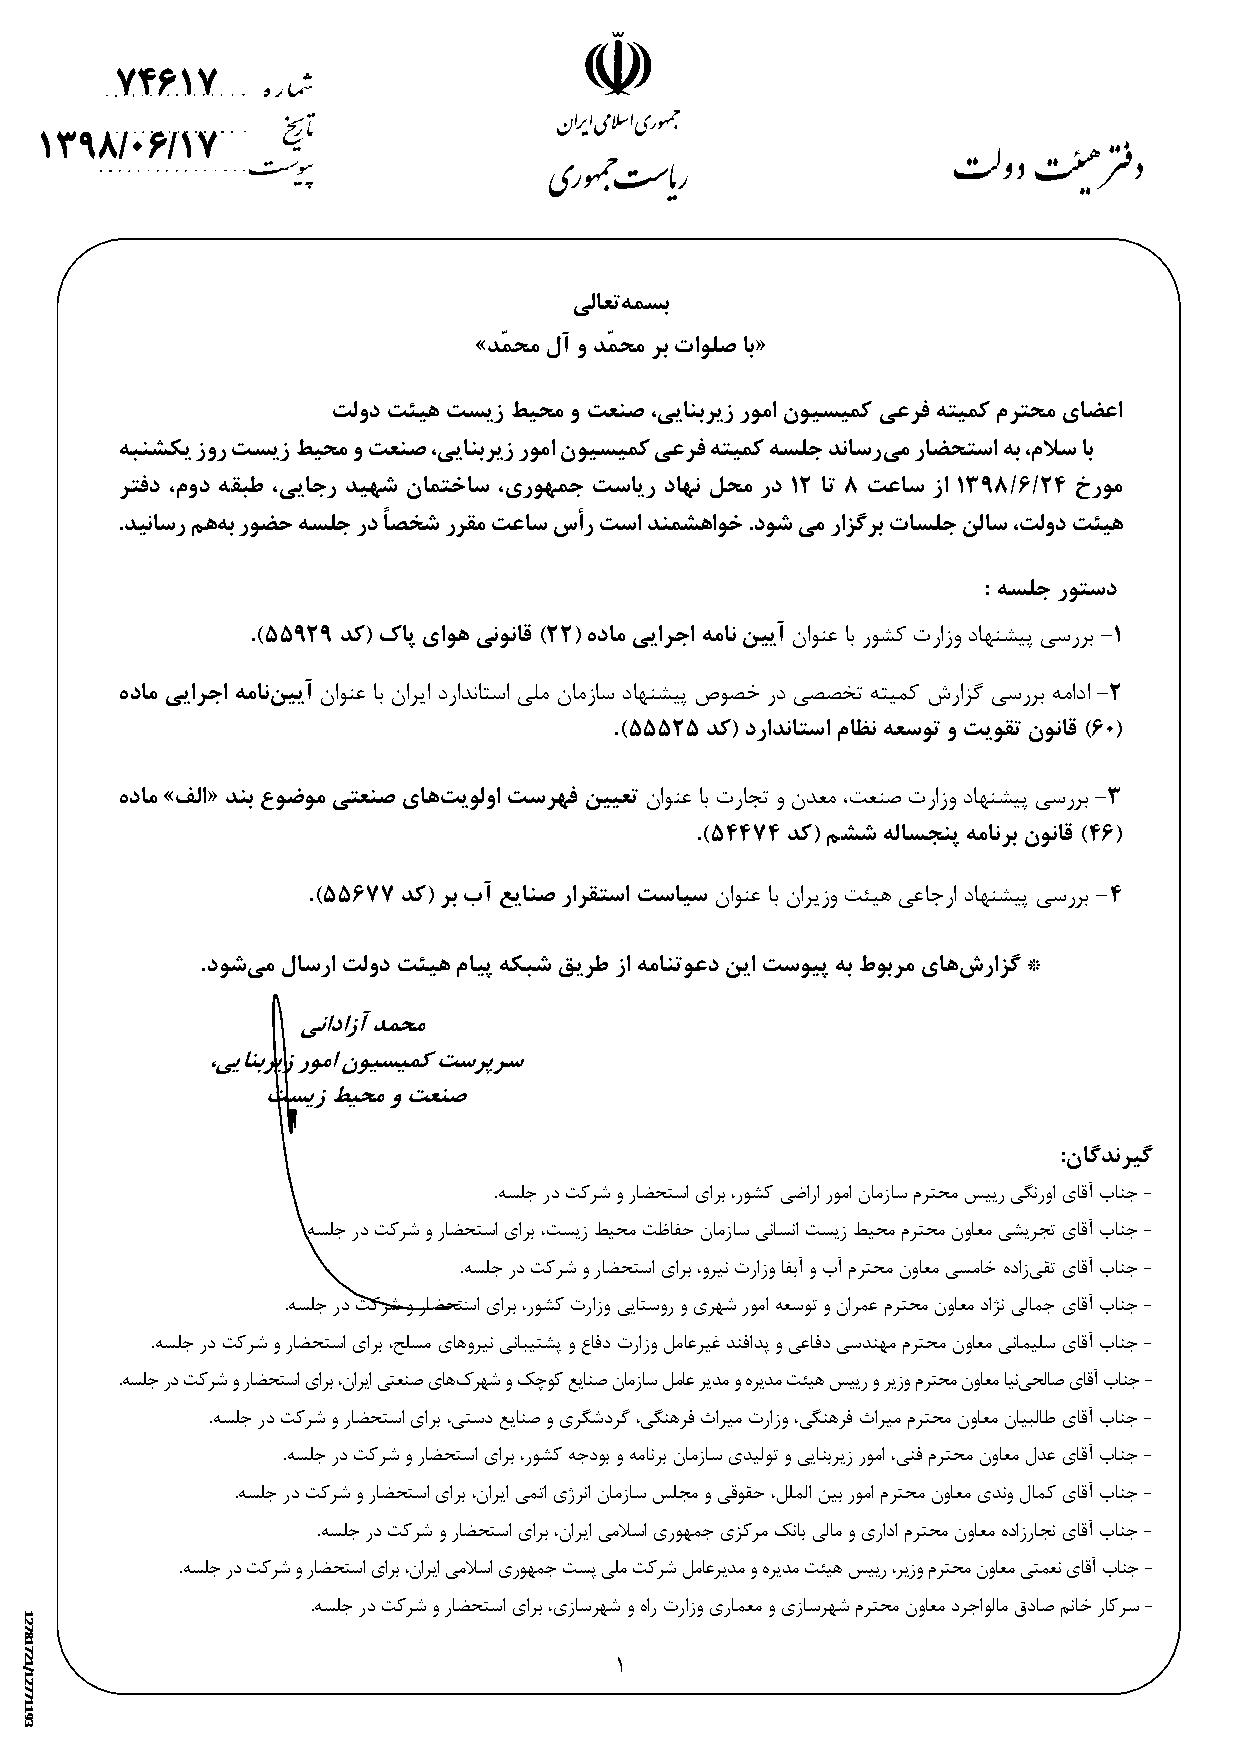 جمهوری اسلامی ایران
ریاست جمهوری
دفتر هیئت دولت
شماره ۷۴۶۱۷
تاریخ ۱۳۹۸/۰۶/۱۷
پیوست
بسمه‌تعالی
«با صلوات بر محمّد و آل محمّد»
اعضای محترم کمیته فرعی کمیسیون امور زیربنایی، صنعت و محیط زیست هیئت دولت
با سلام، به استحضار می‌رساند جلسه کمیته فرعی کمیسیون امور زیربنایی، صنعت و محیط زیست روز یکشنبه
مورخ ۱۳۹۸/۶/۲۴ از ساعت ۸ تا ۱۲ در محل نهاد ریاست جمهوری، ساختمان شهید رجایی، طبقه دوم، دفتر
هیئت دولت، سالن جلسات برگزار می شود. خواهشمند است رأس ساعت مقرر شخصاً در جلسه حضور به‌هم رسانید.
دستور جلسه :
۱- بررسی پیشنهاد وزارت کشور با عنوان آیین نامه اجرایی ماده (۲۲) قانونی هوای پاک (کد ۵۵۹۲۹).
۲- ادامه بررسی گزارش کمیته تخصصی در خصوص پیشنهاد سازمان ملی استاندارد ایران با عنوان آیین‌نامه اجرایی ماده
(۶۰) قانون تقویت و توسعه نظام استاندارد (کد ۵۵۵۲۵).
۳- بررسی پیشنهاد وزارت صنعت، معدن و تجارت با عنوان تعیین فهرست اولویت‌های صنعتی موضوع بند «الف» ماده
(۴۶) قانون برنامه پنجساله ششم (کد ۵۴۴۷۴).
۴- بررسی پیشنهاد ارجاعی هیئت وزیران با عنوان سیاست استقرار صنایع آب بر (کد ۵۵۶۷۷).
* گزارش‌های مربوط به پیوست این دعوتنامه از طریق شبکه پیام هیئت دولت ارسال می‌شود.
محمد آزادانی
سرپرست کمیسیون امور زیربنایی،
صنعت و محیط زیست
گیرندگان:
- جناب آقای اورنگی رییس محترم سازمان امور اراضی کشور، برای استحضار و شرکت در جلسه.
- جناب آقای تجریشی معاون محترم محیط زیست انسانی سازمان حفاظت محیط زیست، برای استحضار و شرکت در جلسه
- جناب آقای تقی‌زاده خامسی معاون محترم آب و آبفا وزارت نیرو، برای استحضار و شرکت در جلسه.
- جناب آقای جمالی نژاد معاون محترم عمران و توسعه امور شهری و روستایی وزارت کشور، برای استحضار و شرکت در جلسه.
- جناب آقای سلیمانی معاون محترم مهندسی دفاعی و پدافند غیرعامل وزارت دفاع و پشتیبانی نیروهای مسلح، برای استحضار و شرکت در جلسه.
- جناب آقای صالحی‌نیا معاون محترم وزیر و رییس هیئت مدیره و مدیر عامل سازمان صنایع کوچک و شهرک‌های صنعتی ایران، برای استحضار و شرکت در جلسه.
- جناب آقای طالبیان معاون محترم میراث فرهنگی، وزارت میراث فرهنگی، گردشگری و صنایع دستی، برای استحضار و شرکت در جلسه.
- جناب آقای عدل معاون محترم فنی، امور زیربنایی و تولیدی سازمان برنامه و بودجه کشور، برای استحضار و شرکت در جلسه.
- جناب آقای کمال وندی معاون محترم امور بین الملل، حقوقی و مجلس سازمان انرژی اتمی ایران، برای استحضار و شرکت در جلسه.
- جناب آقای نجارزاده معاون محترم اداری و مالی بانک مرکزی جمهوری اسلامی ایران، برای استحضار و شرکت در جلسه.
- جناب آقای نعمتی معاون محترم وزیر، رییس هیئت مدیره و مدیرعامل شرکت ملی پست جمهوری اسلامی ایران، برای استحضار و شرکت در جلسه.
- سرکار خانم صادق مالواجرد معاون محترم شهرسازی و معماری وزارت راه و شهرسازی، برای استحضار و شرکت در جلسه.
۱
12781721/12771193